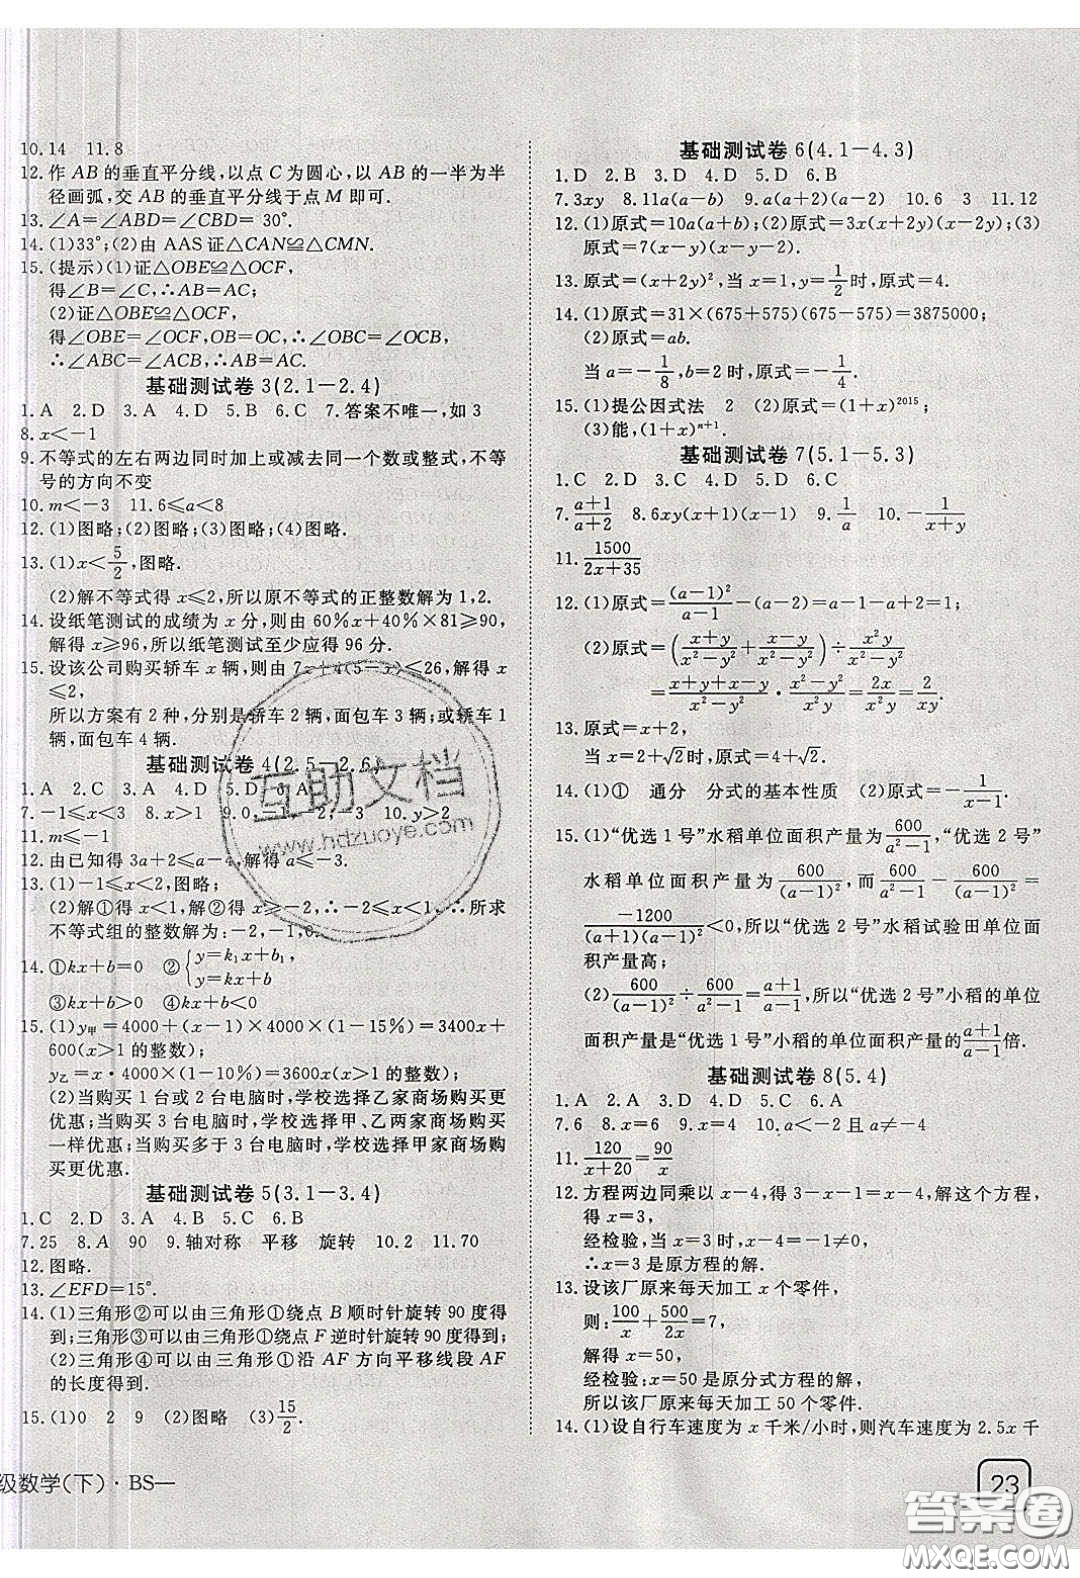 10.14 11.8
12.作 AB 的垂直平分线,以点 C 为圆心,以 AB 的一半为半
径画弧,交 AB 的垂直平分线于点 M 即可.
13.∠A=∠ABD=∠CBD=30°.
14.(1)33°;(2)由 AAS 证△CAN≌△CMN.
15.(提示)(1)证△OBE≌△OCF,
得∠B=∠C,∴AB=AC;
(2)证△OBE≌△OCF,
得∠OBE=∠OCF,OB=OC,∴∠OBC=∠OCB,
∴∠ABC=∠ACB,∴AB=AC.
基础测试卷 3(2.1-2.4)
1.A 2.D 3.A 4.D 5.B 6.C 7.答案不唯一,如 3
8.x<-1
9.不等式的左右两边同时加上或减去同一个数或整式,不等
号的方向不变
10.m<-3 11.6≤a<8
12.(1)图略;(2)图略;(3)图略;(4)图略.
13.(1)x<5/2,图略.
(2)解不等式得 x≤2,所以原不等式的正整数解为 1,2.
14.设纸笔测试的成绩为 x 分,则由 60%x+40%×81≥90,
解得 x≥96,所以纸笔测试至少应得 96 分.
15.设该公司购买轿车 x 辆,则由 7x+4(5-x)≤26,解得 x
≤2,
所以方案有 2 种,分别是轿车 2 辆,面包车 3 辆;或轿车 1
辆,面包车 4 辆.
基础测试卷 4(2.5-2.6)
1.A 2.D 3.B 4.D 5.D 6.A
7.-1≤x<3 8.x>1 9.0,-1,-2,-3 10.y>2
11.m≤-1
12.由已知得 3a+2≤a-4,解得 a≤-3.
13.(1)-1≤x<2,图略;
(2)解①得 x<1,解②得 x≥-2,∴-2≤x<1,∴所求
不等式组的整数解为:-2,-1,0.
14.①kx+b=0 ②{y=k₁x+b₁,
y=kx+b
③kx+b>0 ④kx+b<0
15.(1)y甲=4000+(x-1)×4000×(1-15%)=3400x+
600(x>1 的整数);
y乙=x·4000×(1-10%)=3600x(x>1 的整数);
(2)当购买 1 台或 2 台电脑时,学校选择乙家商场购买更
优惠;当购买 3 台电脑时,学校选择甲、乙两家商场购买
一样优惠;当购买多于 3 台电脑时,学校选择甲家商场购
买更优惠.
基础测试卷 5(3.1-3.4)
1.C 2.D 3.A 4.B 5.C 6.B
7.25 8.A 90 9.轴对称 平移 旋转 10.2 11.70
12.图略.
13.∠EFD=15°.
14.(1)三角形②可以由三角形①绕点 B 顺时针旋转 90 度得
到;三角形③可以由三角形①绕点 F 逆时针旋转 90 度得到;
(2)三角形④可以由三角形①沿 AF 方向平移线段 AF
的长度得到.
15.(1)0 2 9 (2)图略 (3)15/2.
级数学(下)·BS—
基础测试卷 6(4.1-4.3)
1.D 2.B 3.D 4.D 5.D 6.B
7.3xy 8.11a(a-b) 9.a(a+2)(a-2) 10.6 3 11.12
12.(1)原式=10a(a+b);(2)原式=3x(x+2y)(x-2y);(3)
原式=7(x-y)(x-y-2).
13.原式=(x+2y)²,当 x=1,y=1/2时,原式=4.
14.(1)原式=31×(675+575)(675-575)=3875000;
(2)原式=ab.
当 a=-1/8,b=2 时,原式=-1/4.
15.(1)提公因式法 2 (2)原式=(1+x)²⁰¹⁵;
(3)能,(1+x)ⁿ⁺¹.
基础测试卷 7(5.1-5.3)
1.C 2.B 3.A 4.B 5.D 6.C
7.(a+1)/(a+2) 8.6xy(x+1)(x-1) 9.1/a 10.-1/(x+y)
11.1500/(2x+35)
12.(1)原式=(a-1)²/(a-1)-(a-2)=a-1-a+2=1;
(2)原式=((x+y)/(x²-y²)+(x-y)/(x²-y²))÷x²y/(x²-y²)
=(x+y+x-y)/(x²-y²)·(x²-y²)/x²y=2x/x²y=2/xy.
13.原式=x+2,
当 x=2+√2时,原式=4+√2.
14.(1)① 通分 分式的基本性质 (2)原式=-1/(x-1).
15.(1)“优选 1 号”水稻单位面积产量为600/(a²-1),“优选 2 号”
水稻单位面积产量为600/(a-1)²,600/(a²-1)-600/(a-1)²=
-1200/((a+1)(a-1)²)<0,所以“优选 2 号”水稻试验田单位面
积产量高;
(2)600/(a-1)²÷600/(a²-1)=(a+1)/(a-1),所以“优选 2 号”小稻的单位
面积产量是“优选 1 号”小稻的单位面积产量的(a+1)/(a-1)倍.
基础测试卷 8(5.4)
1.A 2.D 3.C 4.D 5.C 6.A
7.6 8.x=6 9.x=4 10.a<-2 且 a≠-4
11.120/(x+20)=90/x
12.方程两边同乘以 x-4,得 3-x-1=x-4,解这个方程,
得 x=3,
经检验,当 x=3 时,x-4=-1≠0,
∴x=3 是原方程的解.
13.设该厂原来每天加工 x 个零件,
则:100/x+500/2x=7,
解得 x=50,
经检验:x=50 是原分式方程的解,
所以该厂原来每天加工 50 个零件.
14.(1)设自行车速度为 x 千米/小时,则汽车速度为 2.5x 千
23
互助文档
www.hdzuoye.com
答案圈
MXQE.COM